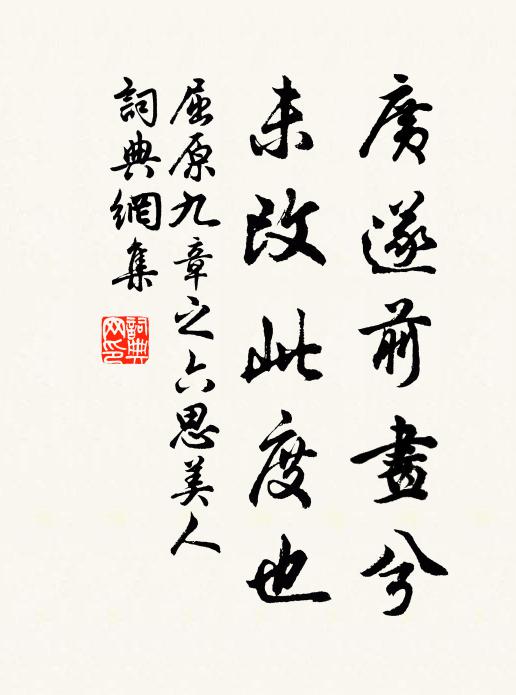 廣遂前畫兮
未改此度也
屈原九章之六思美人
詞典網集
詞典
网印